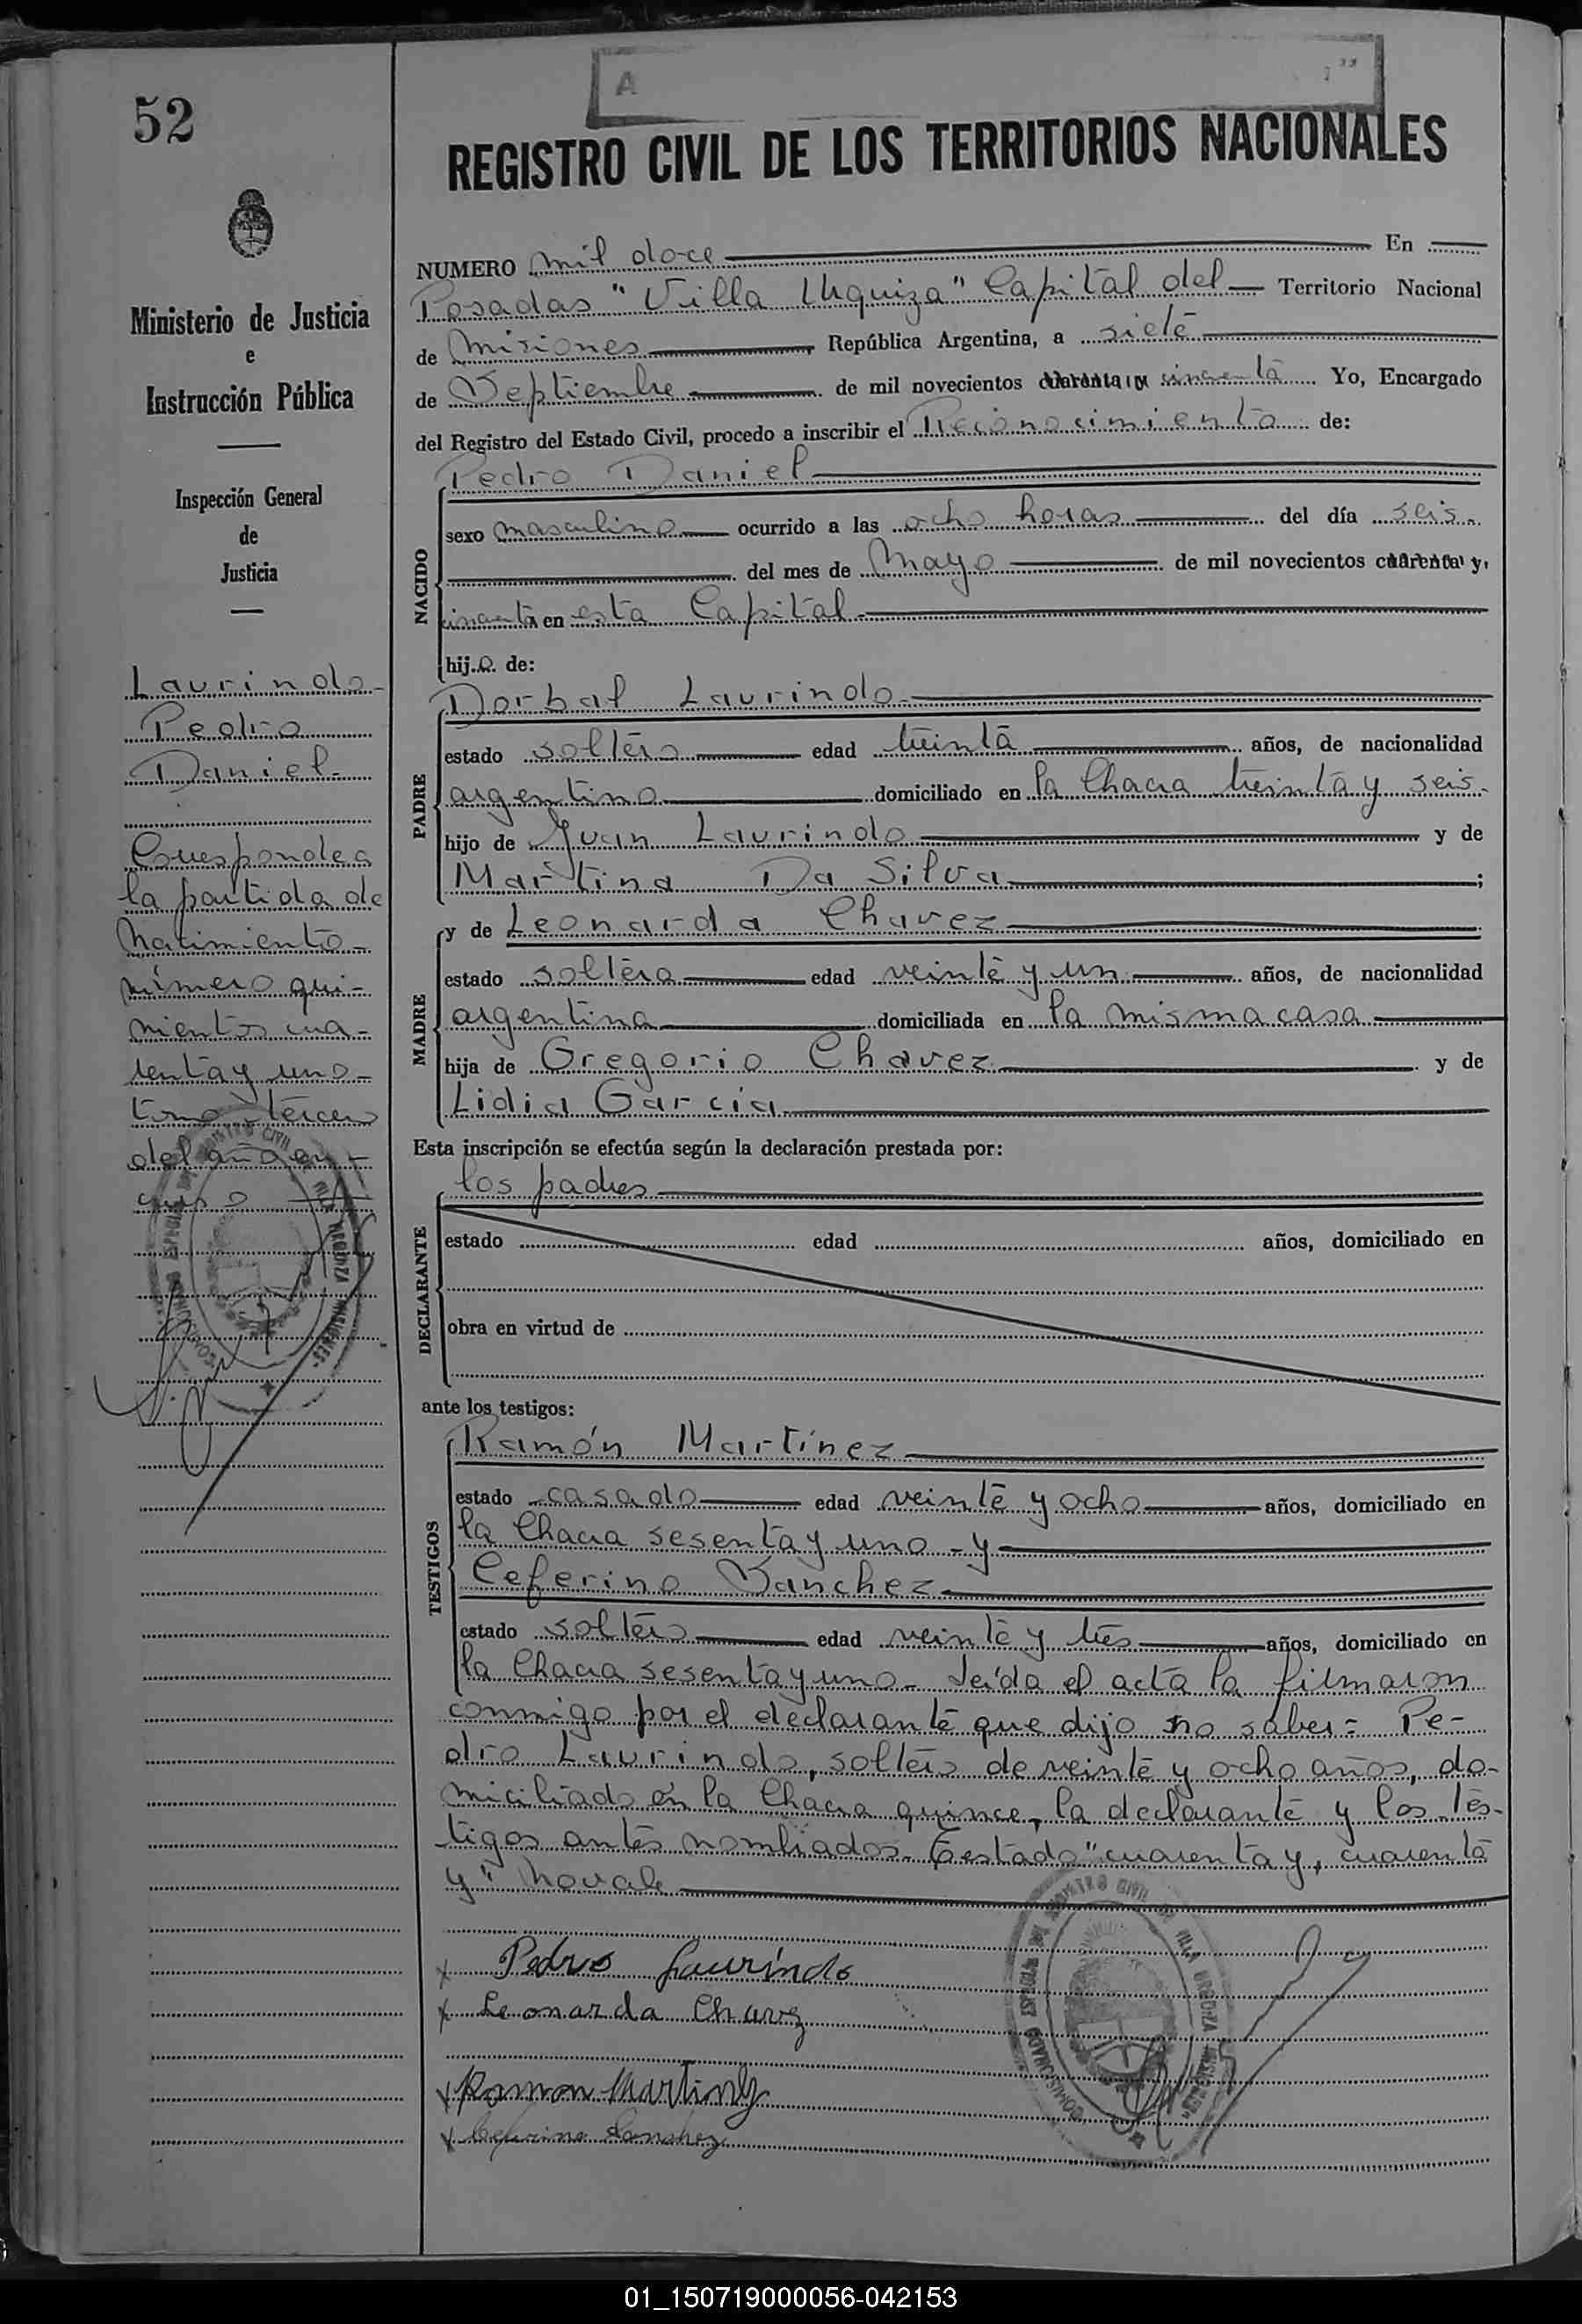 52
A
REGISTRO CIVIL DE LOS TERRITORIOS NACIONALES
Ministerio de Justicia
e
Instrucción Pública
Inspección General
de
Justicia
Laurindo
Pedro
Daniel
Corresponde a
la partida de
Nacimiento
número qui-
nientos cua-
renta y uno
tomo tercero
del año en
curso
NUMERO mil doce En
Posadas "Villa Urquiza" Capital del Territorio Nacional
de Misiones República Argentina, a siete
de Septiembre de mil novecientos cuarenta y cincuenta Yo, Encargado
del Registro del Estado Civil, procedo a inscribir el Reconocimiento de:
NACIDO
Pedro Daniel
sexo masculino ocurrido a las ocho horas del día seis
del mes de Mayo de mil novecientos cuarenta y
cincuenta en esta Capital
hij.o. de:
PADRE
Dorbal Laurindo
estado soltero edad treinta años, de nacionalidad
argentino domiciliado en la Chacra treinta y seis
hijo de Juan Laurindo y de
Martina Da Silva ;
MADRE
y de Leonarda Chavez
estado soltera edad veinte y un años, de nacionalidad
argentina domiciliada en la misma casa
hija de Gregorio Chavez y de
Lidia Garcia
Esta inscripción se efectúa según la declaración prestada por:
los padres
DECLARANTE
estado edad años, domiciliado en
obra en virtud de
ante los testigos:
TESTIGOS
Ramón Martínez
estado casado edad veinte y ocho años, domiciliado en
la Chacra sesenta y uno - y
Ceferino Sanchez
estado soltero edad veinte y tres años, domiciliado en
la Chacra sesenta y uno - Leída el acta la firmaron
conmigo por el declarante que dijo no saber = Pe-
dro Laurindo, soltero de veinte y ocho años, do-
miciliado en la Chacra quince, la declarante y los tes-
tigos antes nombrados. Testado "cuarenta y, cuarenta
y" No vale
x Pedro Laurindo
x Leonarda Chavez
x Ramon Martinez
x Ceferino Sanchez
01_150719000056-042153